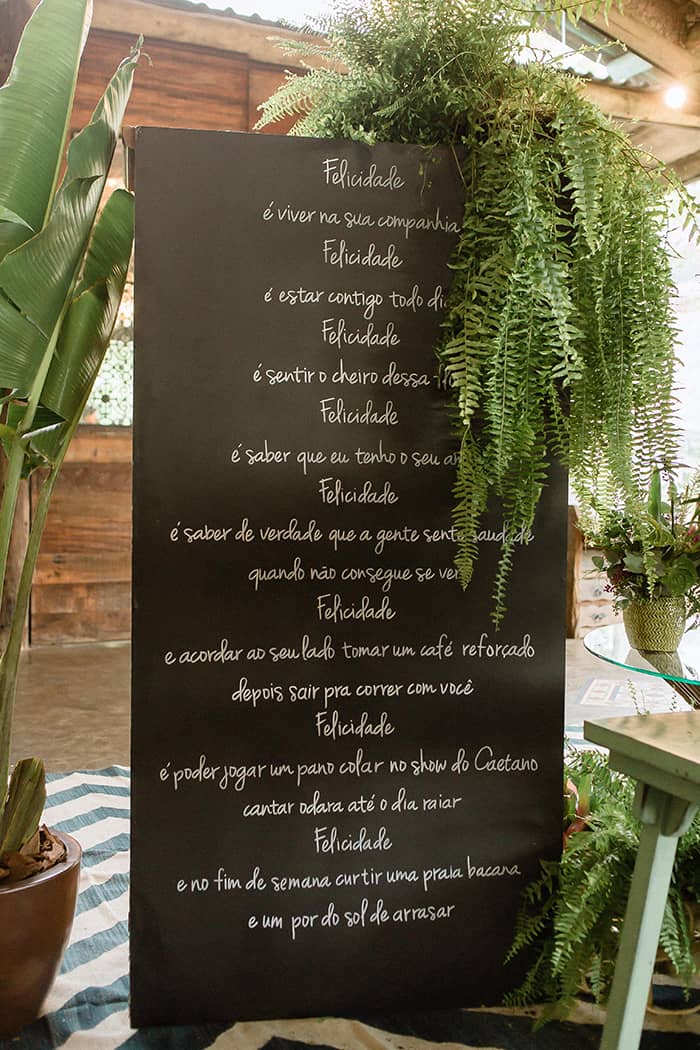 Felicidade
é viver na sua companhia
Felicidade
é estar contigo todo dia
Felicidade
é sentir o cheiro dessa
Felicidade
é saber que eu tenho o seu
Felicidade
é saber de verdade que a gente sente saudade
quando não consegue se ver
Felicidade
e acordar ao seu lado tomar um café reforçado
depois sair pra correr com você
Felicidade
é poder jogar um pano colar no show do Caetano
cantar odara até o dia raiar
Felicidade
e no fim de semana curtir uma praia bacana
e um por do sol de arrasar